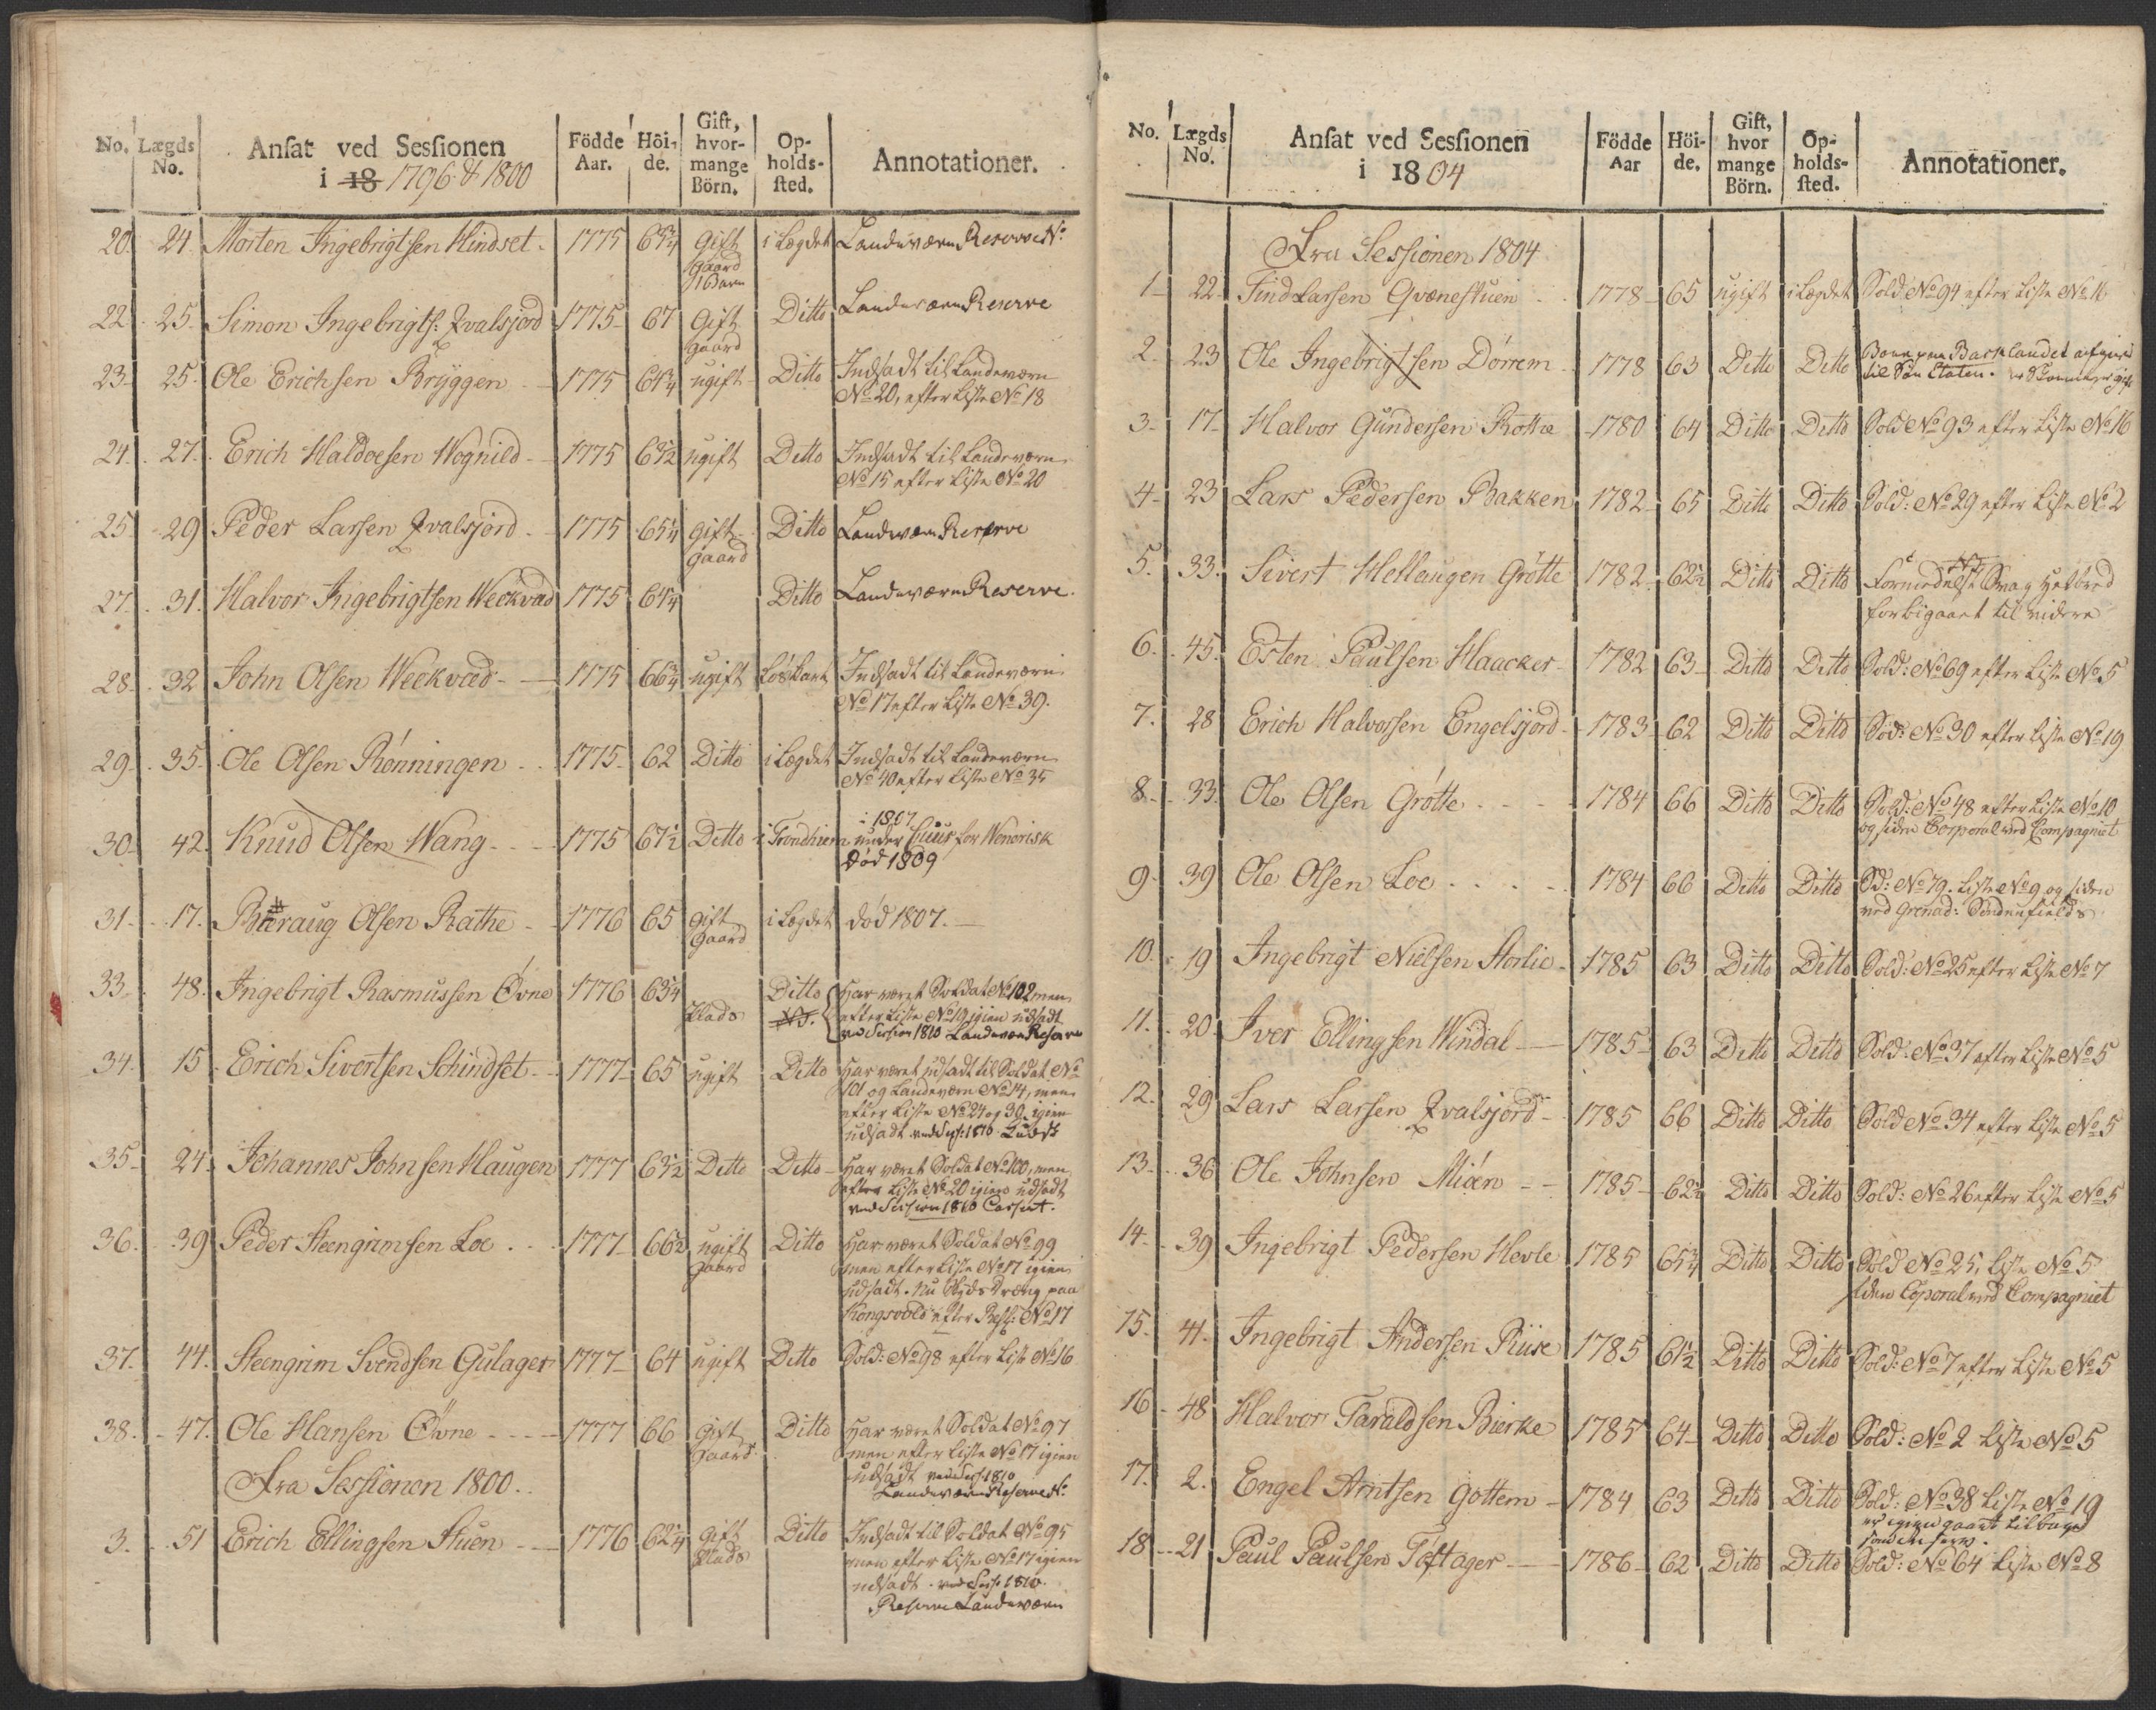 No. Lægds No. Ansat ved Sessionen i 18 1796 & 1800 Födde Aar. Höide. Gift, hvormange Börn. Opholdssted. Annotationer.
20. 24. Morten Ingebrigtsen Hindset 1775 65¾ Gift gaard 1 Barn i Lægdet Landeværn Reserve
22. 25. Simon Ingebrigts: Qvalsjord 1775 67 Gift gaard Ditto Landeværn Reserve
23. 25. Ole Erichsen Brÿggen 1775 64¼ ugift Ditto Indsadt til Landeværn
No 20, efter Liste No 18
24. 27. Erich Haldoesen Wognild 1775 63½ ugift Ditto Indsadt til Landeværn
No 15 efter Liste No 20
25. 29 Peder Larsen Qvalsjord 1775 65¼ gift gaard Ditto Landeværn Reserve
27. 31. Halvor Ingebrigtsen Weckvad 1775 64¼ Ditto Landeværn Reserve.
28. 32 John Olsen Weckvad 1775 66¾ ugift Løskart Indsadt til Landeværn
No 17 efter Liste No 39.
29. 35. Ole Olsen Rønningen 1775 62 Ditto i Lægdet Indsadt til Landeværn
No 40 efter Liste No 35
30. 42. Knud Olsen Wang 1775 67½ Ditto i Trondhiem i 1807
under Cuur for Wenerisk
Død 1809
31. 17. Bæraug Olsen Rathe 1776 65 gift gaard i Lægdet død 1807.
33. 48. Ingebrigt Rasmussen Øvne 1776 63¼ Plads Ditto Har været Soldat No 102 men
efter Liste No 19 igien udsadt
ved Session 1810 Landeværn Reserve
34. 15. Erich Sivertsen Schindset 1777 65 ugift Ditto Har været udsadt til Soldat No
101 og Landeværn No 14, men
efter Liste No 24 og 39 igien
udsadt ved Sess: 1810
35. 24. Johannes Johnsen Haugen 1777 63½ Ditto Ditto Har været Soldat No 100, men
efter Liste No 20 igien udsadt
ved Session 1810 Casseret.
36. 39 Peder Steengrimsen Loe 1777 66½ ugift gaard Ditto Har været Soldat No 99
men efter Liste No 17 igien
udsadt. Nu Skyds Dræng paa
Kongsvold efter No 17
37. 44. Steengrim Svendsen Gulager 1777 64 ugift Ditto Sold: No 98 efter Liste No 16
38. 47. Ole Hansen Øvne 1777 66 Gift Gaard Ditto Har været Soldat No 97
men efter Liste No 17 igien
udsadt ved Sess: 1810
Landeværn Reserve
Fra Sessionen 1800.
3. 51 Erich Ellingsen Stuen 1776 62¼ Gift Plads Ditto Indsadt til Soldat No 95
men efter Liste No 17 igien
udsadt. ved Sess: 1810.
Reserve Landeværn
No. Lægds No. Ansat ved Sessionen i 1804 Födde Aar Höide. Gift, hvor mange Börn. Opholdssted. Annotationer.
Fra Sessionen 1804
1. 22. Find Larsen Qvænestuen 1778 65 ugift i Lægdet Sold: No 94 efter Liste No 16
2. 23 Ole Ingebrigtsen Dørrem 1778 63 Ditto Ditto
til Søe Etaten.
3. 17. Halvor Gundersen Rothe 1780 64 Ditto Ditto Sold No 93 efter Liste No 16
4. 23 Lars Pedersen Bakken 1782 65 Ditto Ditto Sold: No 29 efter Liste No 2
5. 33. Sivert Hellaugen Grøtte 1782 62½ Ditto Ditto
forbigaaet til videre
6. 45. Esten Paulsen Haacker 1782 63 Ditto Ditto Sold: No 69 efter Liste No 5
7. 28 Erich Halvorsen Engelsjord 1783 62 Ditto Ditto Sod: No 30 efter Liste No 19
8. 33. Ole Olsen Grøtte 1784 66 Ditto Ditto Sold: No 48 efter Liste No 10
og siden Corporal ved Compagniet
9. 39 Ole Olsen Loe 1784 66 Ditto Ditto Sd: No 79. Liste No 9 og siden
ved Grenad: Søndenfields
10. 19 Ingebrigt Nielsen Storlie 1785 63 Ditto Ditto Sold: No 25 efter Liste No 7
11. 20 Iver Ellingsen Windal 1785 63 Ditto Ditto Sold: No 37 efter Liste No 5
12. 29 Lars Larsen Qvalsjord 1785 66 Ditto Ditto Sold No 34 efter Liste No 5
13. 36 Ole Johnsen Miøen 1785 62¾ Ditto Ditto Sold: No 26 efter Liste No 5
14. 39 Ingebrigt Pedersen Hevle 1785 65¾ Ditto Ditto Sold No 25, Liste No 5
siden Coporal ved Compagniet
15. 41. Ingebrigt Andersen Riise 1785 61½ Ditto Ditto Sold: No 7 efter Liste No 5
16 48 Halvor Taraldsen Bierke 1785 64 Ditto Ditto Sold: No 2 Liste No 5
17. 2. Engel Arntsen Gottem 1784 63 Ditto Ditto Sold: No 38 Liste No 19
er igien gaaet tilbage
18. 21 Paul Paulsen Toftager 1786 62 Ditto Ditto Sold: No 64 Liste No 8